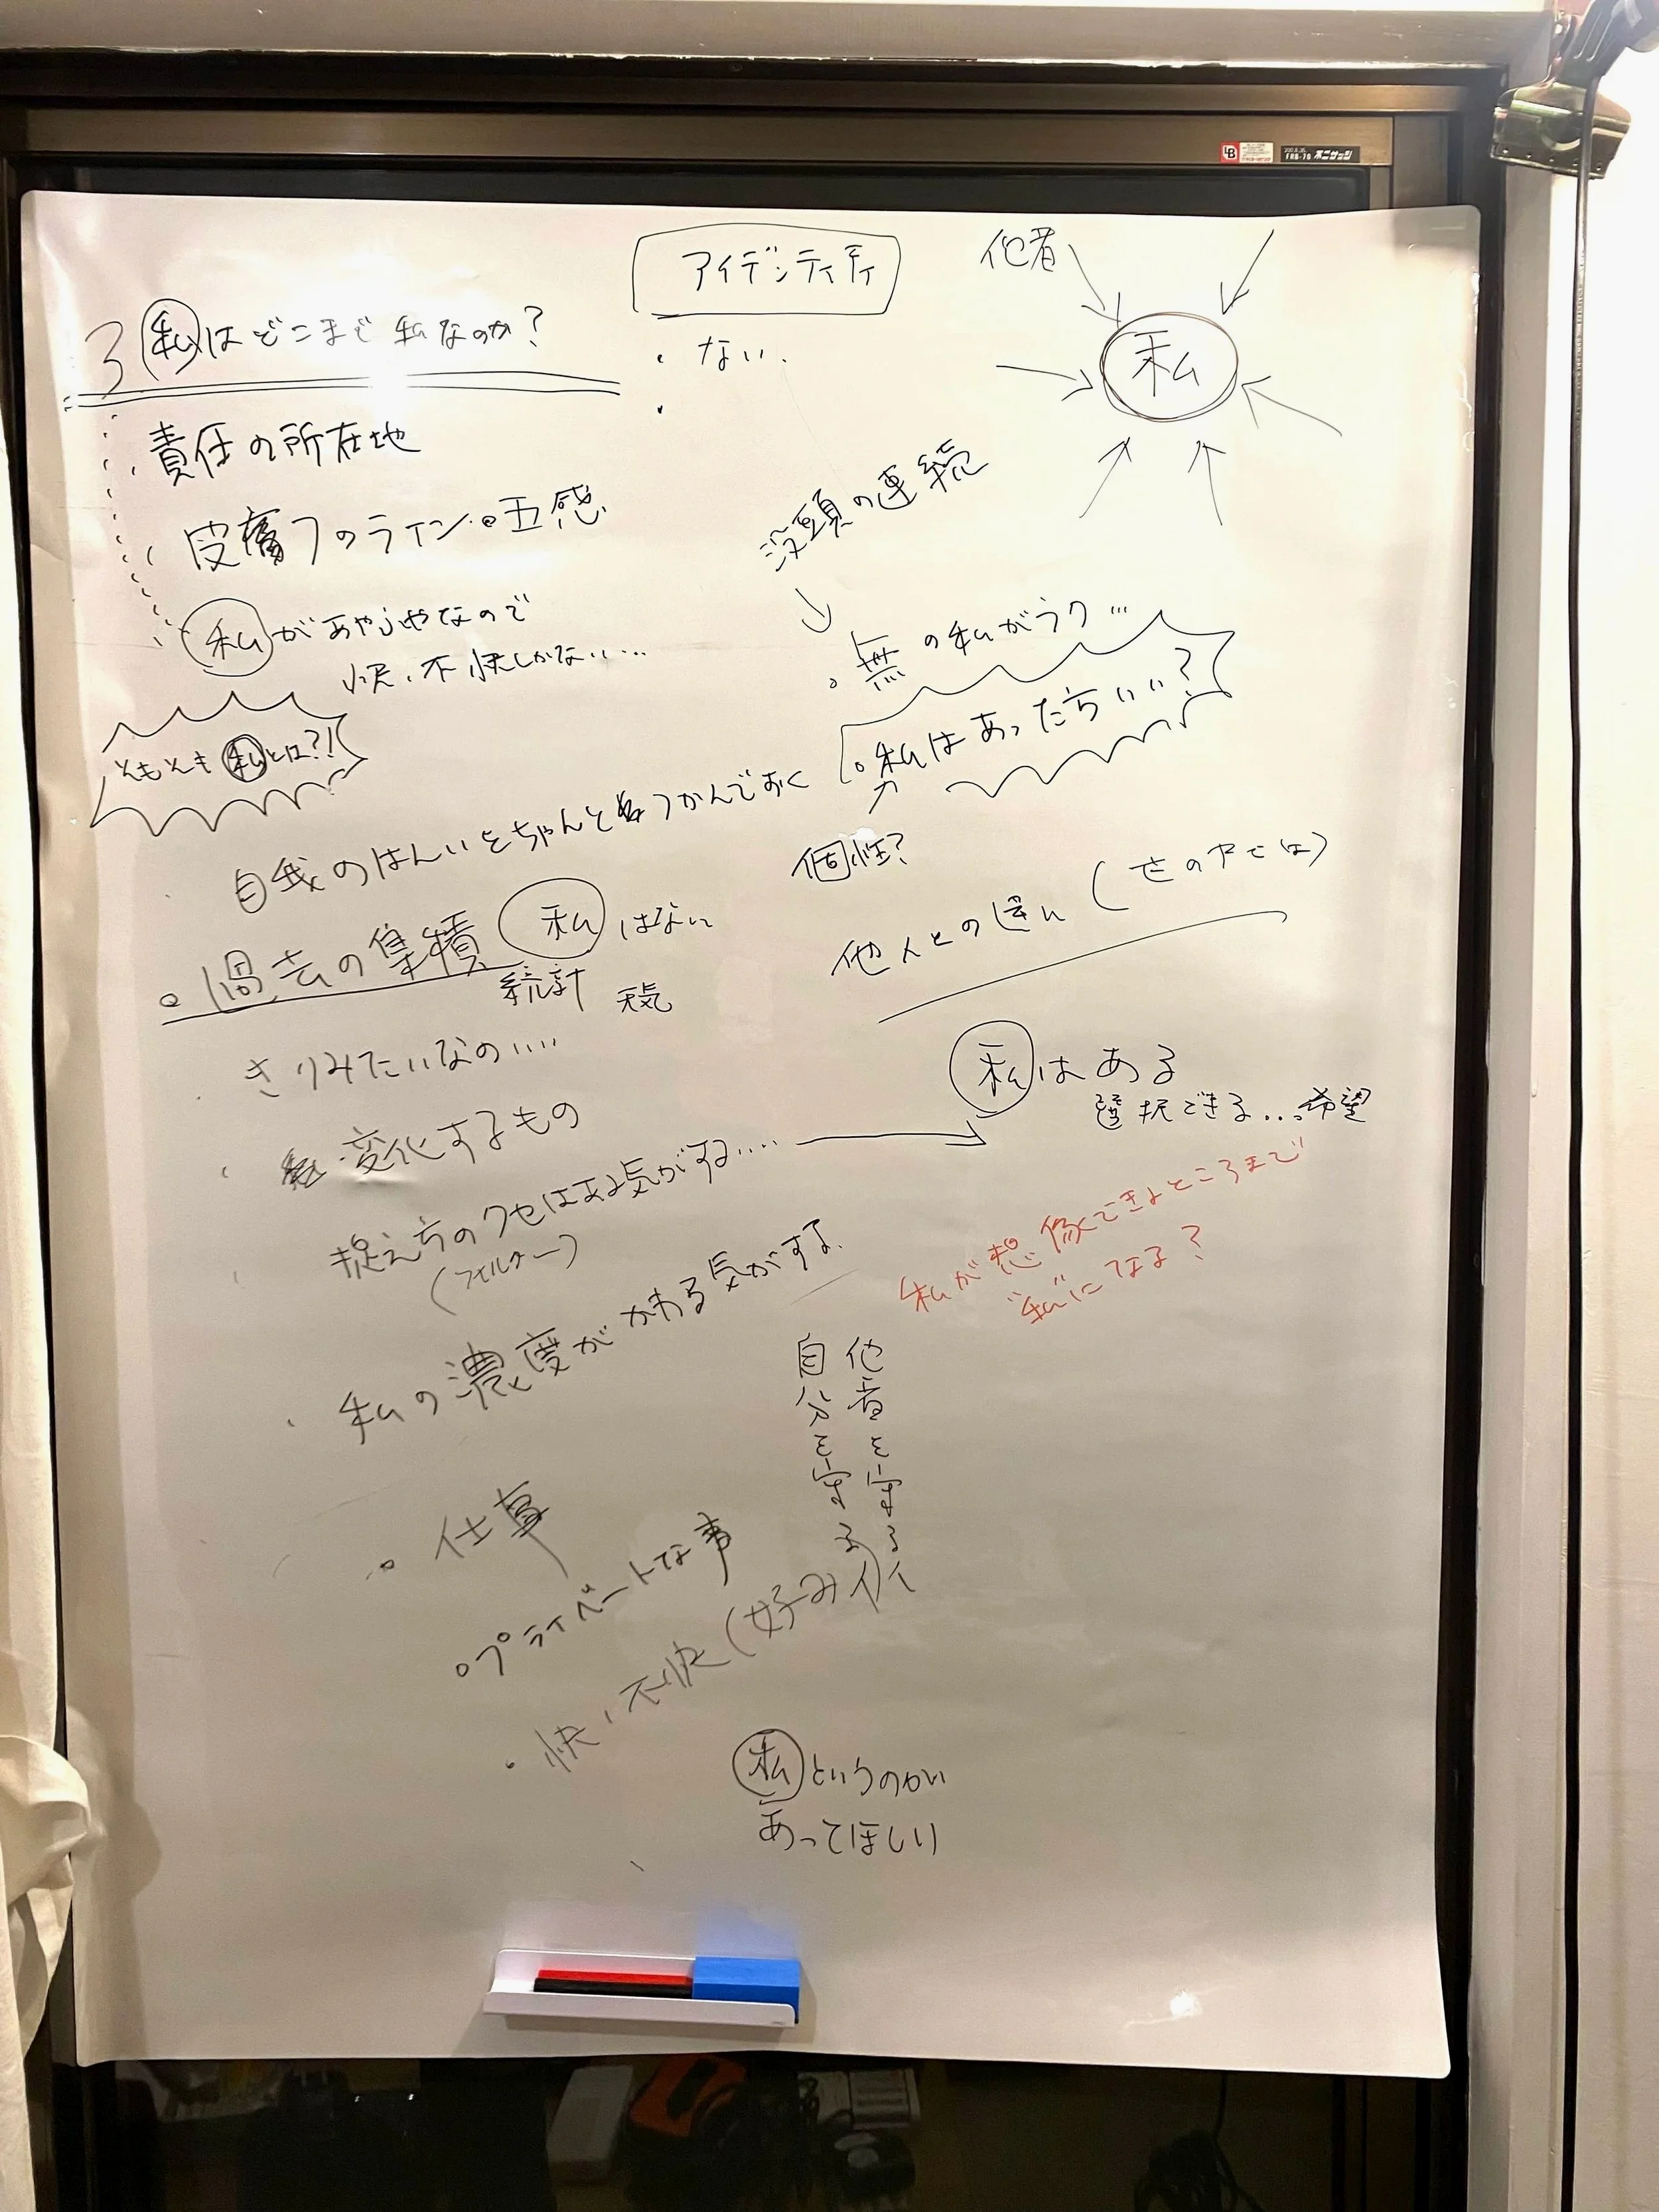 アイデンティティ
・ない.
・
他者
私
3 私はどこまで私なのか?
・責任の所在地
皮膚のライン。五感
私があやふやなので
快、不快しかない....
そもそも私とは?!
没頭の連続
・無の私がラク...
・私はあったらいい?
個性?
他人との違い(世の中では)
自我のはんいをちゃんとつかんでおく
・過去の集積 私はない
統計 天気
・きりみたいなの....
・変化するもの
捉え方のクセはある気がする....
(フィルター)
私はある
選択できる...希望
私が想像できるところまで
"私"になる?
・私の濃度がかわる気がする.
他者を守る
自分を守る
・仕事
・プライベートな事
・快、不快(好み
私というのがい
あってほしい
FRB-70 不二サッシ